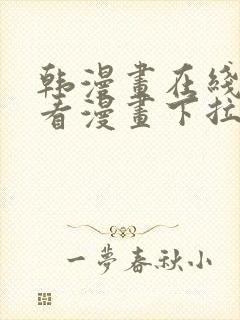 韩漫畫在綫
看漫畫下拉
一夢春秋小